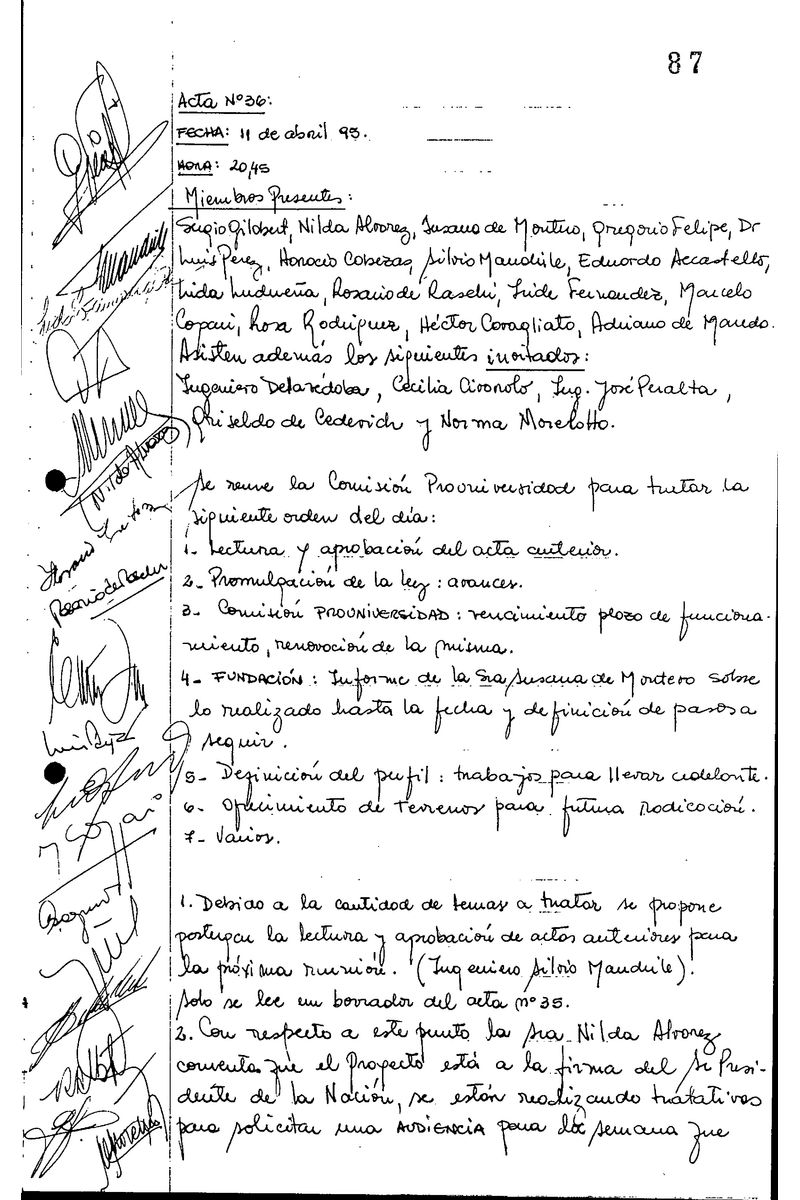 87
Acta Nº36:
FECHA: 11 de abril 95.
HORA: 20,45
Miembros Presentes:
Sergio Gilabert, Nilda Alvarez, Susana de Montero, Gregorio Felipe, Dr
Luis Perez, Horacio Cabezas, Silvio Mandrile, Eduardo Accastello,
Lida Ludueña, Rosario de Raselli, Leide Fernandez, Marcelo
Copari, Rosa Rodriguez, Héctor Cavagliato, Adriana de Maredo.
Asisten además los siguientes invitados:
Ingeniero Delarédoba, Cecilia Civonolo, Ing. José Peralta,
Griselda de Cederich y Norma Morelatto.
Se reune la Comisión Prouniversidad para tratar la
siguiente orden del día:
1- Lectura y aprobación del acta anterior.
2- Promulgación de la ley: avances.
3- Comisión PROUNIVERSIDAD: vencimiento plazo de funciona-
miento, renovación de la misma.
4- FUNDACIÓN: Informe de la Sra Susana de Montero sobre
lo realizado hasta la fecha y definición de pasos a
seguir.
5- Definición del perfil: trabajos para llevar adelante.
6- Ofrecimiento de terrenos para futura radicación.
7- Varios.
1. Debido a la cantidad de temas a tratar se propone
postergar la lectura y aprobación de actas anteriores para
la próxima reunión. (Ingeniero Silvio Mandrile).
Solo se lee un borrador del acta nº35.
2. Con respecto a este punto la Sra Nilda Alvarez
comenta que el Proyecto está a la firma del Sr Presi-
dente de la Nación, se están realizando tratativas
para solicitar una AUDIENCIA para la semana que
Nilda Alvarez
Rosario de Raselli
Luis Perez